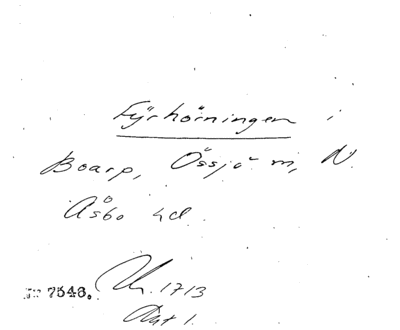 Fyrhörningen i
Boarp, Össjö sn, N.
Åsbo hd.
7546.
Nr. 1713
Ant 1.